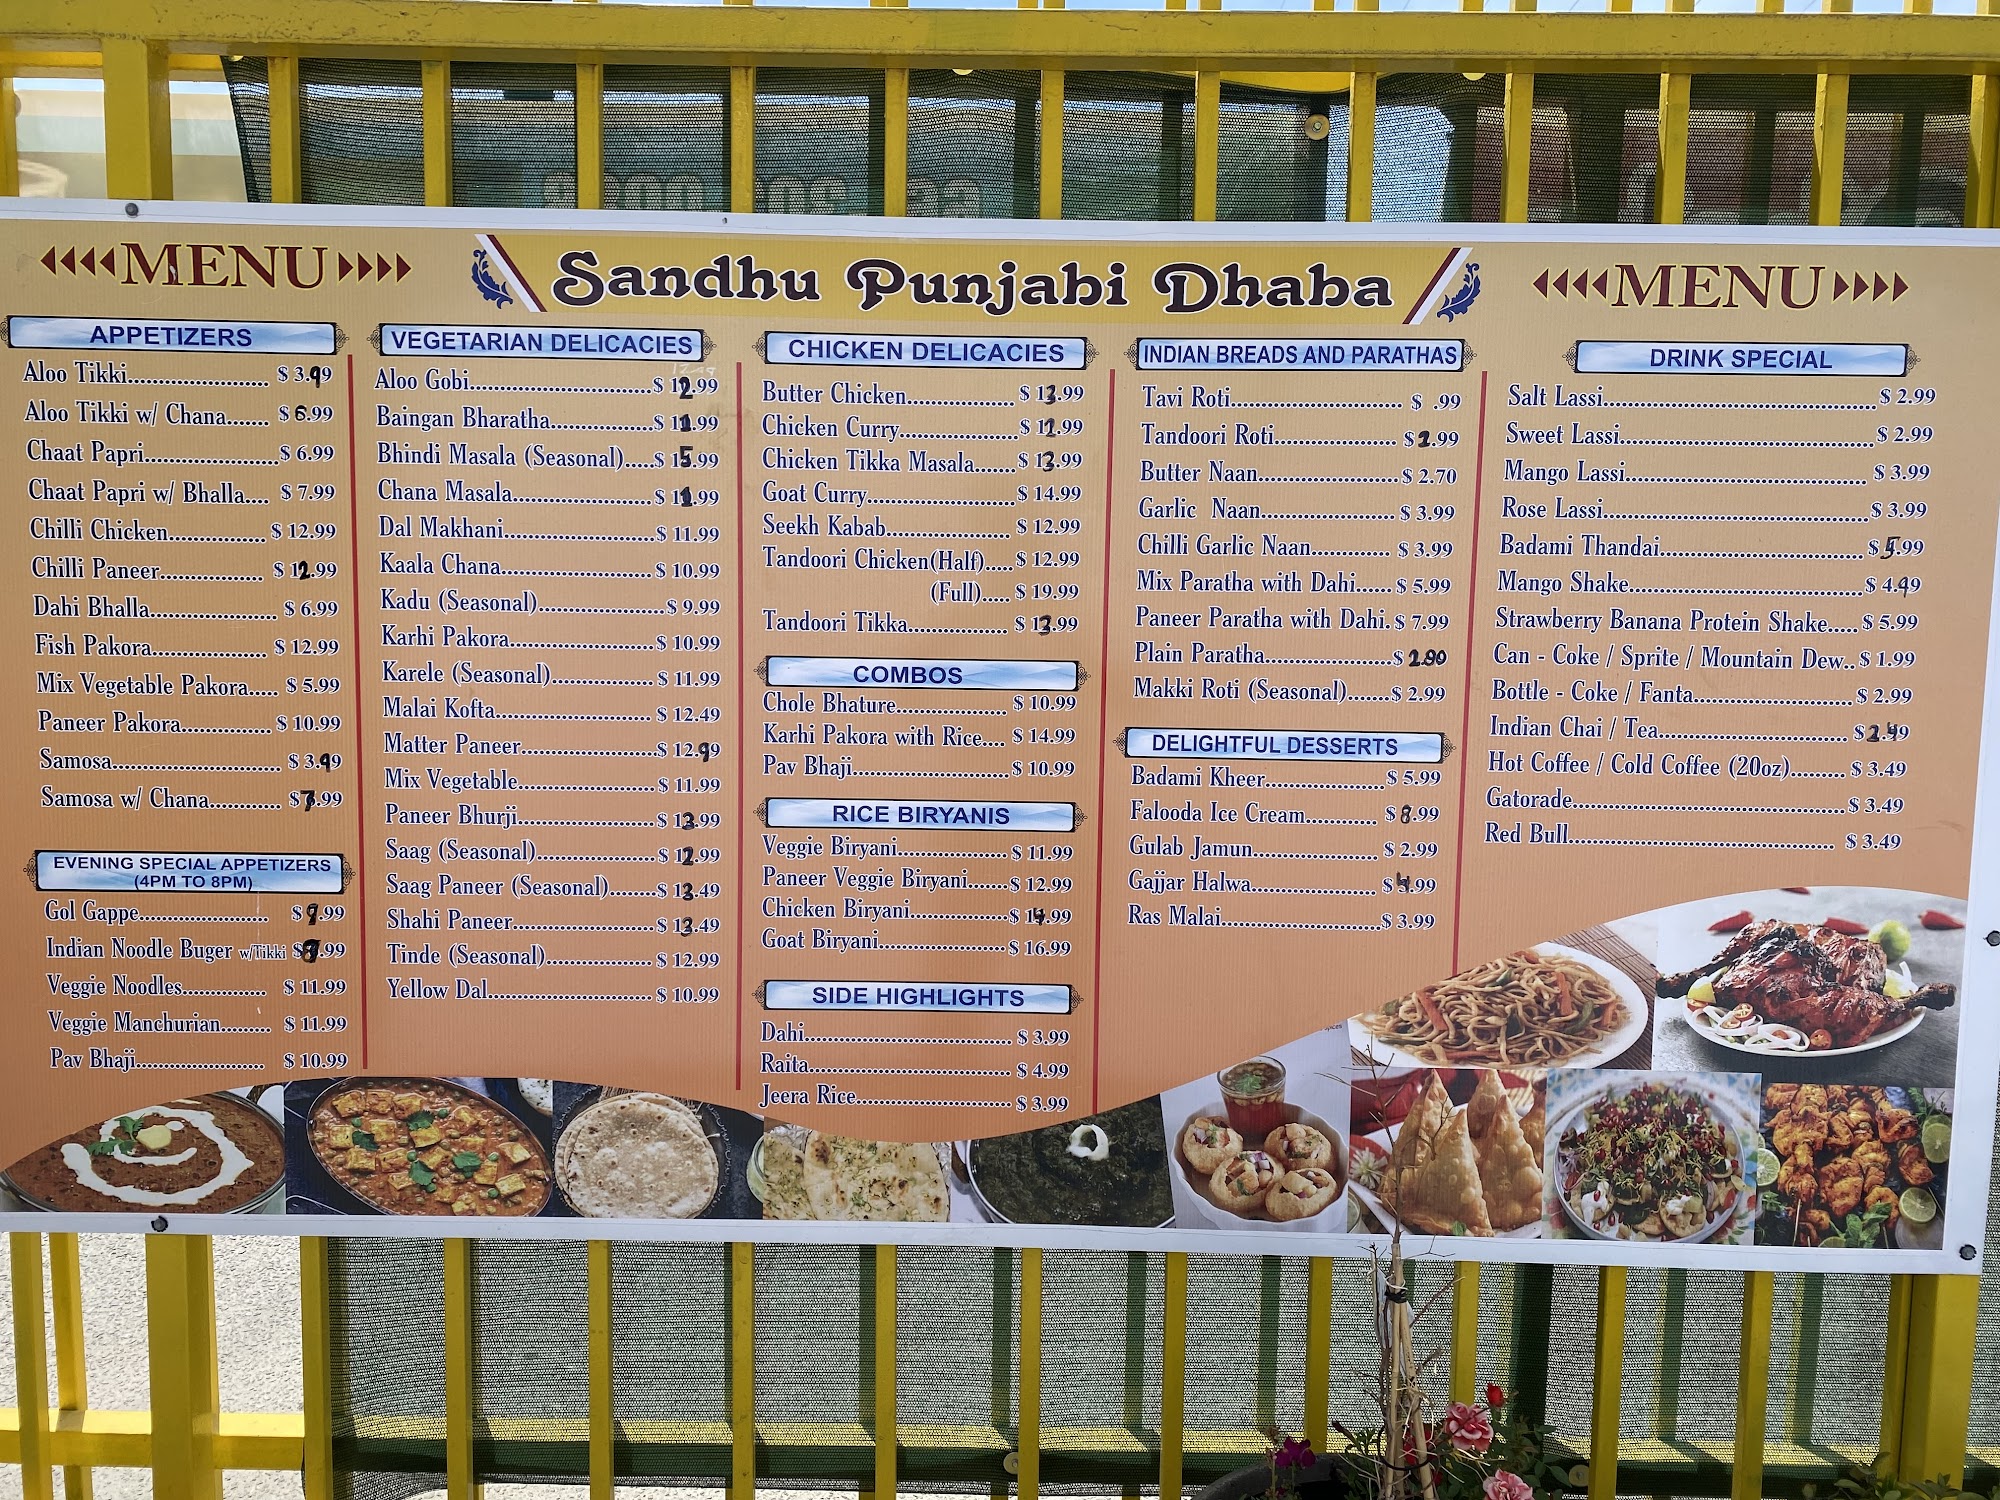 MENU
Sandhu Punjabi Dhaba
MENU
APPETIZERS
Aloo Tikki $ 3.99
Aloo Tikki w/ Chana $ 6.99
Chaat Papri $ 6.99
Chaat Papri w/ Bhalla $ 7.99
Chilli Chicken $ 12.99
Chilli Paneer $ 12.99
Dahi Bhalla $ 6.99
Fish Pakora $ 12.99
Mix Vegetable Pakora $ 5.99
Paneer Pakora $ 10.99
Samosa $ 3.99
Samosa w/ Chana $ 7.99
EVENING SPECIAL APPETIZERS
(4PM TO 8PM)
Gol Gappe $ 9.99
Indian Noodle Buger w/Tikki $ 8.99
Veggie Noodles $ 11.99
Veggie Manchurian $ 11.99
Pav Bhaji $ 10.99
VEGETARIAN DELICACIES
Aloo Gobi $ 12.99
Baingan Bharatha $ 11.99
Bhindi Masala (Seasonal) $ 15.99
Chana Masala $ 11.99
Dal Makhani $ 11.99
Kaala Chana $ 10.99
Kadu (Seasonal) $ 9.99
Karhi Pakora $ 10.99
Karele (Seasonal) $ 11.99
Malai Kofta $ 12.49
Matter Paneer $ 12.99
Mix Vegetable $ 11.99
Paneer Bhurji $ 13.99
Saag (Seasonal) $ 12.99
Saag Paneer (Seasonal) $ 13.49
Shahi Paneer $ 13.49
Tinde (Seasonal) $ 12.99
Yellow Dal $ 10.99
CHICKEN DELICACIES
Butter Chicken $ 13.99
Chicken Curry $ 12.99
Chicken Tikka Masala $ 13.99
Goat Curry $ 14.99
Seekh Kabab $ 12.99
Tandoori Chicken(Half) $ 12.99
(Full) $ 19.99
Tandoori Tikka $ 13.99
COMBOS
Chole Bhature $ 10.99
Karhi Pakora with Rice $ 14.99
Pav Bhaji $ 10.99
RICE BIRYANIS
Veggie Biryani $ 11.99
Paneer Veggie Biryani $ 12.99
Chicken Biryani $ 14.99
Goat Biryani $ 16.99
SIDE HIGHLIGHTS
Dahi $ 3.99
Raita $ 4.99
Jeera Rice $ 3.99
INDIAN BREADS AND PARATHAS
Tavi Roti $ .99
Tandoori Roti $ 1.99
Butter Naan $ 2.70
Garlic Naan $ 3.99
Chilli Garlic Naan $ 3.99
Mix Paratha with Dahi $ 5.99
Paneer Paratha with Dahi. $ 7.99
Plain Paratha $
Makki Roti (Seasonal) $ 2.99
DELIGHTFUL DESSERTS
Badami Kheer $ 5.99
Falooda Ice Cream $ 8.99
Gulab Jamun $ 2.99
Gajjar Halwa $ 4.99
Ras Malai $ 3.99
DRINK SPECIAL
Salt Lassi $ 2.99
Sweet Lassi $ 2.99
Mango Lassi $ 3.99
Rose Lassi $ 3.99
Badami Thandai $ 5.99
Mango Shake $ 4.99
Strawberry Banana Protein Shake $ 5.99
Can - Coke / Sprite / Mountain Dew.. $ 1.99
Bottle - Coke / Fanta $ 2.99
Indian Chai / Tea $ 2.49
Hot Coffee / Cold Coffee (20oz) $ 3.49
Gatorade $ 3.49
Red Bull $ 3.49